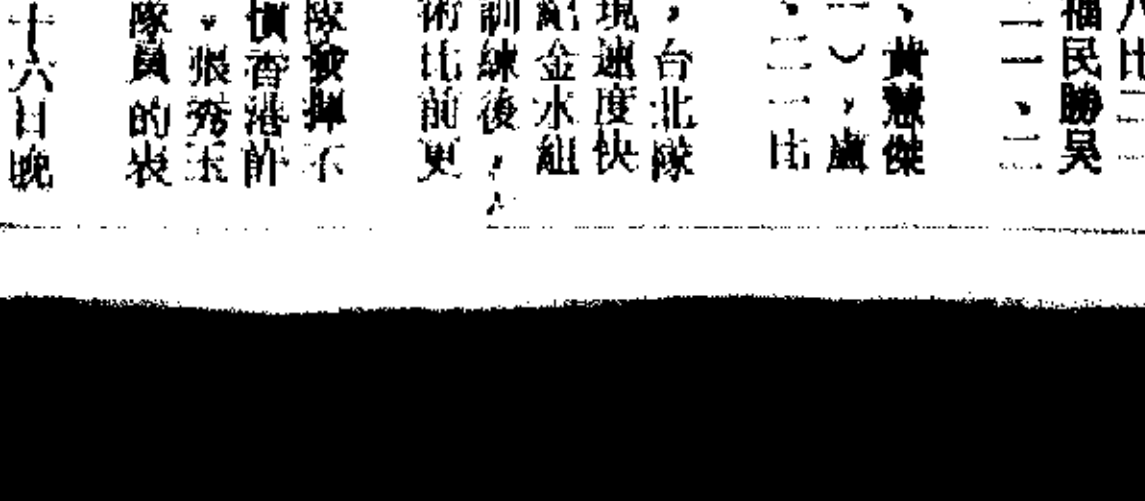 八比二
福民勝吳
二一、三
、黃慧傑
一），盧
、三一比
，台北隊
現速度快
紀金水組
訓練後，
術比前更
隊發揮不
慣香港的
，張秀玉
隊員的表
十六日晚